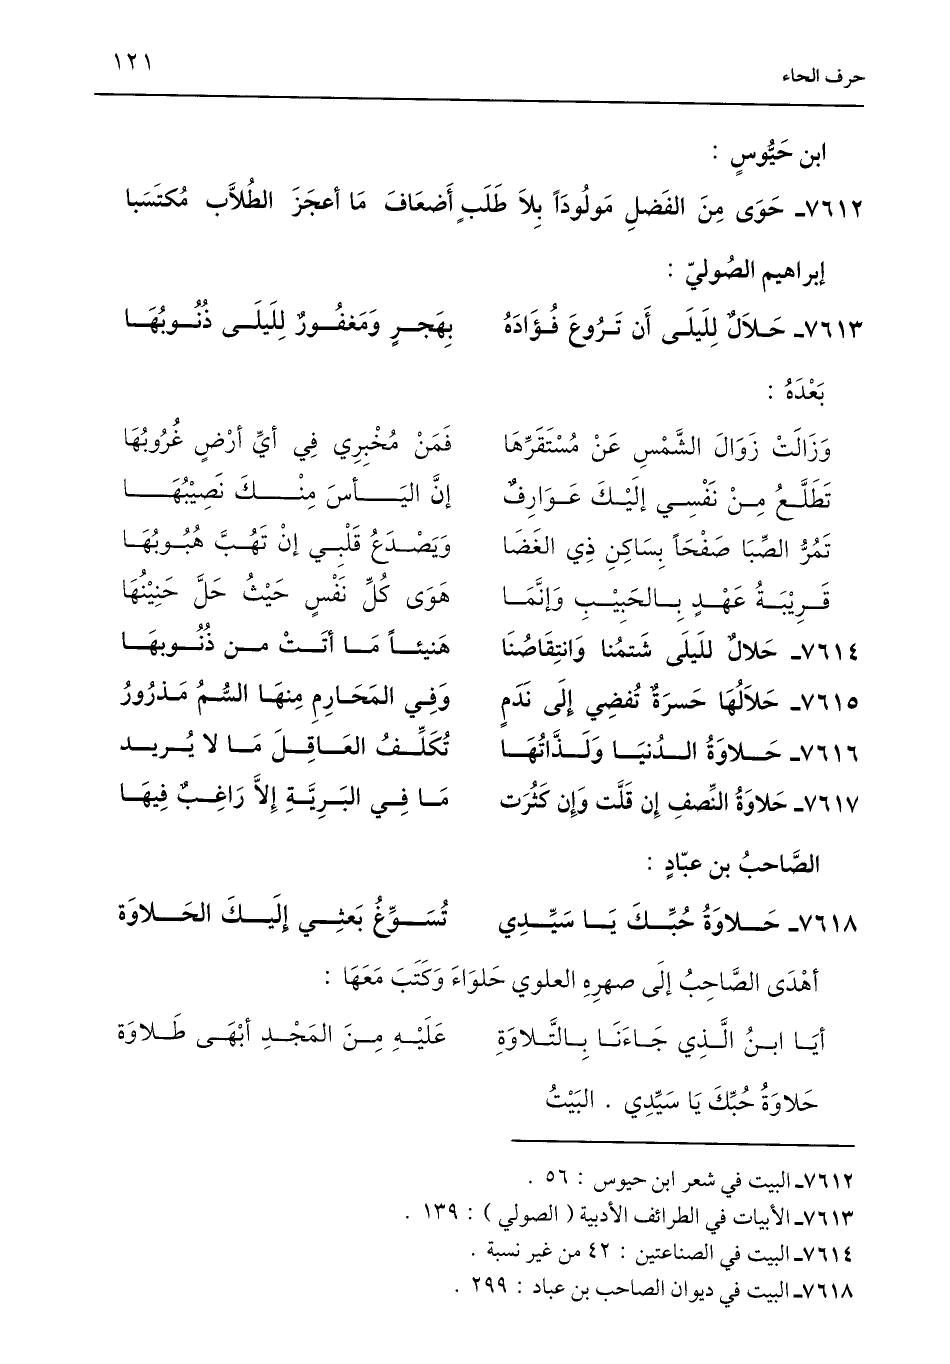 حرف الحاء ١٢١
ابن حَيُّوسٍ :
٧٦١٢ـ حَوَى مِنَ الفَضلِ مَولُودَاً بِلاَ طَلَبٍ أَضعَافَ مَا أعجَزَ الطُلاَّب مُكتَسَبا
إبراهيم الصُوليّ :
٧٦١٣ـ حَلاَلٌ لِلَيلَى أَن تَرُوعَ فُؤَادَهُ بِهَجرٍ وَمَغفُورٌ لِلَيلَى ذُنُوبُهَا
بَعْدَهُ :
وَزَالَتْ زَوَالَ الشَّمْسِ عَنْ مُسْتَقَرِّهَا فَمَنْ مُخْبِرِي فِي أيِّ أرْضٍ غُرُوبُهَا
تَطَلَّعُ مِنْ نَفْسِي إلَيْكَ عَوَارِفٌ إنَّ اليَأسَ مِنْكَ نَصِيْبُهَا
تَمُرُّ الصِّبَا صَفْحَاً بِسَاكِنِ ذِي الغَضَا وَيَصْدَعُ قَلْبِي إنْ تَهُبَّ هُبُوبُهَا
قَرِيْبَةُ عَهْدٍ بِالحَبِيْبِ وَإنَّمَا هَوَى كُلِّ نَفْسٍ حَيْثُ حَلَّ حَنِيْنُهَا
٧٦١٤ـ حَلالٌ لِلَيلَى شَتمُنا وَانتِقَاصُنَا هَنيئاً مَا أتَتْ من ذُنُوبهَا
٧٦١٥ـ حَلاَلُهَا حَسرَةٌ تُفضِي إلَى نَدَمٍ وَفِي المَحَارِمِ مِنهَا السُّمُ مَذرُورُ
٧٦١٦ـ حَلاوَةُ الدُنيَا وَلَذَّاتُهَا تُكَلِّفُ العَاقِلَ مَا لا يُريد
٧٦١٧ـ حَلاوَةُ النِّصفِ إن قَلَّت وَإن كَثُرَت مَا فِي البَريَّةِ إلاَّ رَاغِبٌ فِيهَا
الصَّاحبُ بن عبّادٍ :
٧٦١٨ـ حَلاوَةُ حُبِّكَ يَا سَيِّدِي تُسَوِّغُ بَعثِي إلَيكَ الحَلاوَة
أهْدَى الصَّاحِبُ إلَى صهرِهِ العلوي حَلوَاءَ وَكَتَبَ مَعَهَا :
أيَا ابنُ الَّذِي جَاءَنَا بِالتِّلاوَةِ عَلَيْهِ مِنَ المَجْدِ أبْهَى طَلاوَة
حَلاوَةُ حُبِّكَ يَا سَيِّدِي . البَيْتُ
٧٦١٢ـ البيت في شعر ابن حيوس : ٥٦ .
٧٦١٣ـ الأبيات في الطرائف الأدبية ( الصولي ) : ١٣٩ .
٧٦١٤ـ البيت في الصناعتين : ٤٢ من غير نسبة .
٧٦١٨ـ البيت في ديوان الصاحب بن عباد : ٢٩٩ .